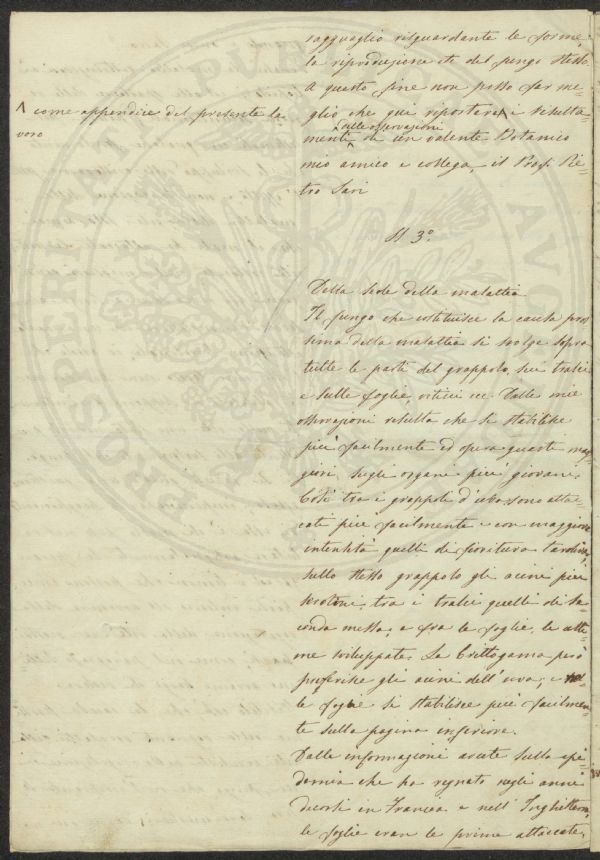 ragguaglio risguardante le forme,
la riproduzione etc del fungo stesso.
A questo fine non posso far me=
glio che qui riportare i risulta=
menti dalle osservazioni di un valente Botanico
mio amico e collega, il Prof. Pie=
tro Savi
Λ come appendice del presente la
voro
§ 3º.
Della sede della malattia
Il fungo che costituisce la causa pros
sima della malattia si svolge sopra
tutte le parti del grappolo, sui tralci
e sulle foglie, viticci ec. Dalle mie
osservazioni risulta che si stabilisce
più facilmente ed opera guasti mag=
giori sugli organi più giovani.
Così tra i grappoli d'uva sono attac=
cati più facilmente e con maggiore
intensità quelli di fioritura tardiva,
sullo stesso grappolo gli acini più
serotini, tra i tralci quelli di se=
conda messa, e fra le foglie, le ulti=
me sviluppate. La Crittogama però
preferisce gli acini dell'uva; e
le foglie si stabilisce più facilmen=
te sulla pagina inferiore.
Dalle informazioni avute sulla epi=
demia che ha regnato negli anni
decorsi in Francia e nell'Inghilterra,
le foglie eran le prime attaccate,
PROSPERITATI PUBLICAE